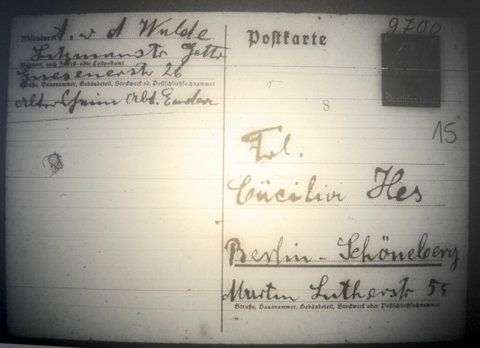 9700
Absender: A. v d Walde
Litzmannstr Getto
Wohnort, auch Zustell- oder Leitpostamt
Gnesenerstr 26
Straße, Hausnummer, Gebäudeteil, Stockwerk od. Postschließfachnummer
Altersheim Abt.
Postkarte
8
15
Frl.
Cäcilia Hes
Berlin-Schöneberg
Martin Lutherstr 55
Straße, Hausnummer, Gebäudeteil, Stockwerk oder Postschließfachnummer